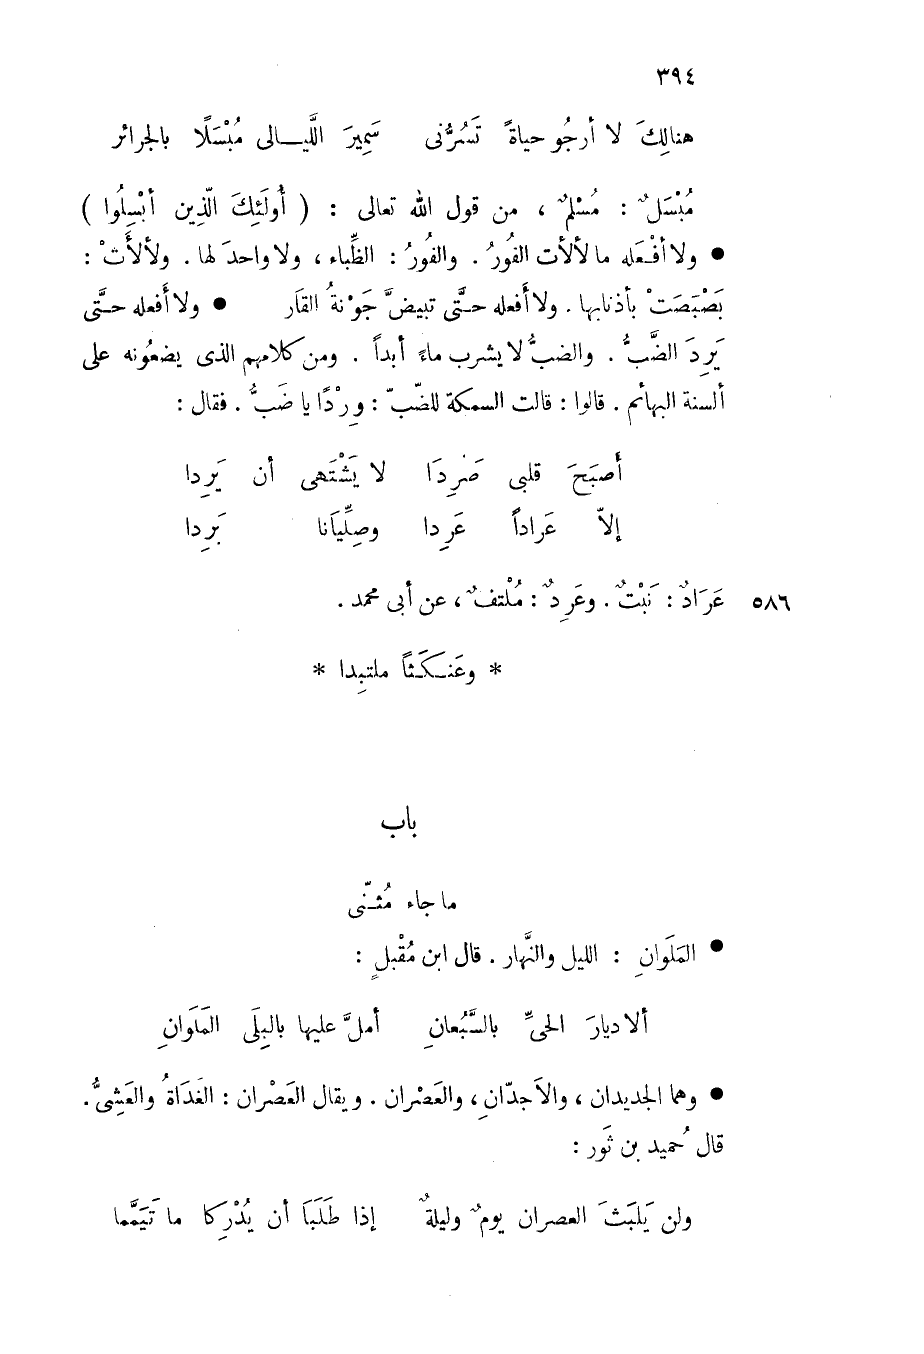 ٣٩٤
هنالِكَ لا أرجُو حياةً تَسُرُّنى سَمِيرَ اللَّيـــالى مُبْسَلًا بالجرائر
مُبْسَلٌ : مُسْلمٌ ، من قول الله تعالى : ( أُولَئِكَ الّذِين أبْسِلُوا )
● ولا أفْعَله ما لألأت الفُورُ . والفُورُ : الظِّباء ، ولا واحدَ لها . ولألأَتْ :
بَصْبَصَتْ بأذنابها . ولا أَفعله حتَّى تبيضَّ جَوْنةُ القَار ● ولا أَفعله حتَّى
يَرِدَ الضَّبُّ . والضبُّ لا يشرب ماءً أبداً . ومن كلامهم الذى يضعُونه على
ألسنة البهائم . قالوا : قالت السمكة للضّبّ : وِرْدًا يا ضَبُّ . فقال :
أَصبَحَ قلبى صَرِدَا لا يَشْتَهى أن يَرِدا
إلاّ عَراداً عَرِدا وصِلِّيَانا بَرِدا
٥٨٦ عَرَادٌ : نَبْتٌ . وعَرِدٌ : مُلْتفٌ ، عن أبى محمد .
* وعَنـكَـثاً ملتبِدا *
باب
ما جاء مُثـنّى
● المَلَوانِ : الليل والنَّهار . قال ابن مُقْبلٍ :
ألا ديارَ الحىِّ بالسَّبُعانِ أملَّ عليها بالبِلَى المَلَوانِ
● وهما الجديدان ، والأَجدّانِ ، والعَصْران . ويقال العَصْران : الغَدَاةُ والعَشِىُّ .
قال حُميد بن ثَور :
ولن يَلبَثَ العصران يومٌ وليلةٌ إذا طَلَبَا أن يُدْرِكا ما تَيَمَّما